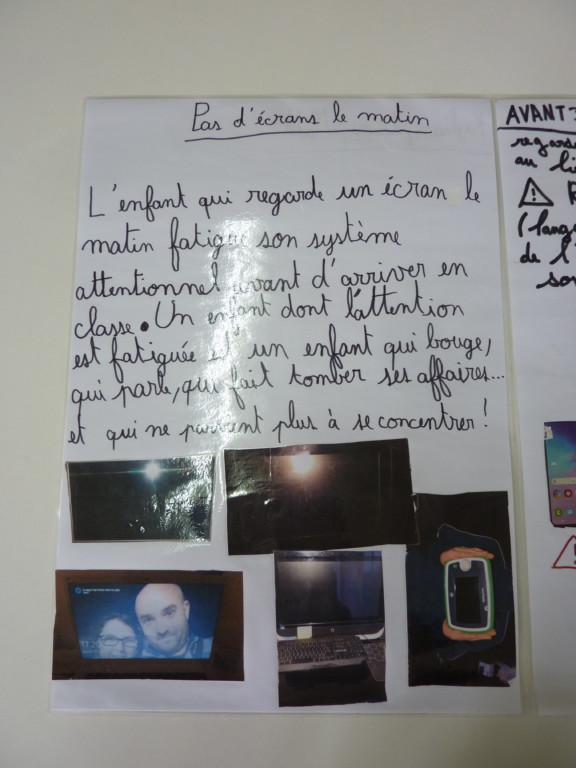 Pas d'écrans le matin
L'enfant qui regarde un écran le
matin fatigue son système
attentionnel avant d'arriver en
classe. Un enfant dont l'attention
est fatiguée est un enfant qui bouge,
qui parle, qui fait tomber ses affaires...
et qui ne parvient plus à se concentrer !
AVANT 3
au
de l'